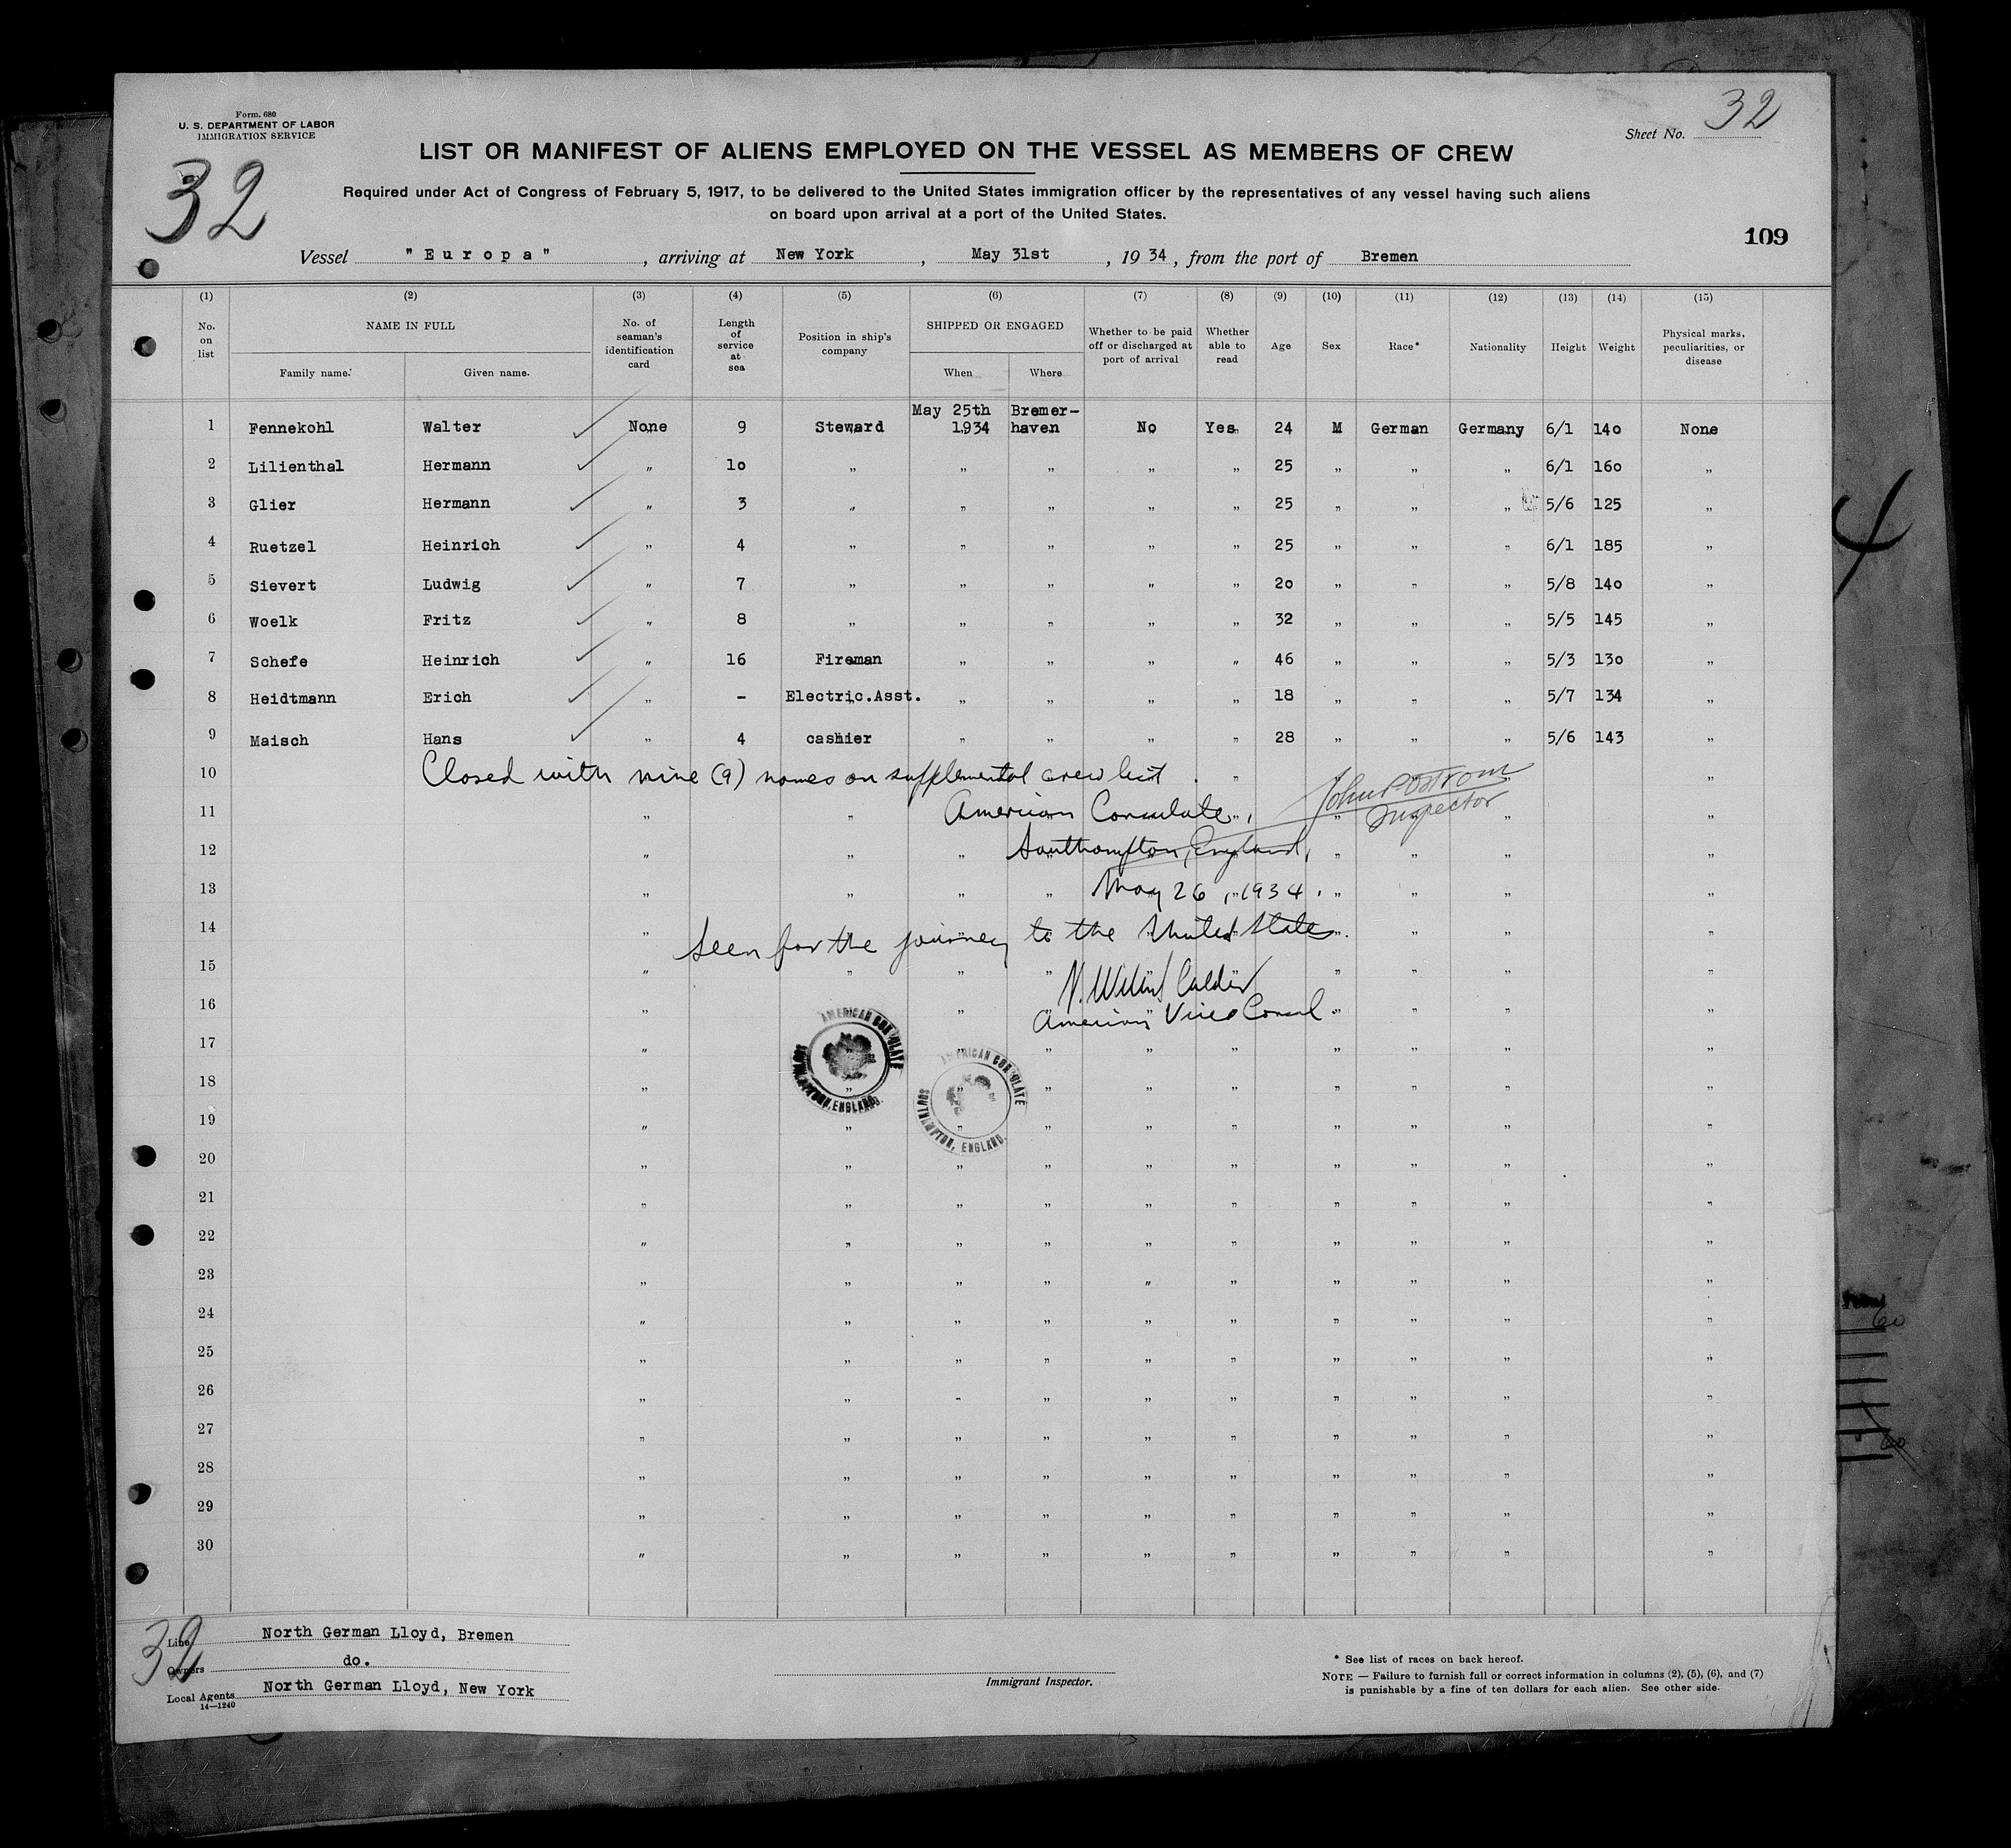 Form. 680
U. S. DEPARTMENT OF LABOR
IMMIGRATION SERVICE
32
Sheet No. 32
LIST OR MANIFEST OF ALIENS EMPLOYED ON THE VESSEL AS MEMBERS OF CREW
32
Required under Act of Congress of February 5, 1917, to be delivered to the United States immigration officer by the representatives of any vessel having such aliens
on board upon arrival at a port of the United States.
109
Vessel "Europa", arriving at New York, May 31st, 1934, from the port of Bremen
(1) (2) (3) (4) (5) (6) (7) (8) (9) (10) (11) (12) (13) (14) (15)
No. on list NAME IN FULL Family name. Given name. No. of seaman's identification card Length of service at sea Position in ship's company SHIPPED OR ENGAGED When Where Whether to be paid off or discharged at port of arrival Whether able to read Age Sex Race* Nationality Height Weight Physical marks, peculiarities, or disease
1 Fennekohl Walter None 9 Steward May 25th 1934 Bremer-haven No Yes 24 M German Germany 6/1 140 None
2 Lilienthal Hermann " 10 " " " " " 25 " " " 6/1 160 "
3 Glier Hermann " 3 " " " " " 25 " " " 5/6 125 "
4 Ruetzel Heinrich " 4 " " " " " 25 " " " 6/1 185 "
5 Sievert Ludwig " 7 " " " " " 20 " " " 5/8 140 "
6 Woelk Fritz " 8 " " " " " 32 " " " 5/5 145 "
7 Schefe Heinrich " 16 Fireman " " " " 46 " " " 5/3 130 "
8 Heidtmann Erich " - Electric.Asst. " " " " 18 " " " 5/7 134 "
9 Maisch Hans " 4 cashier " " " " 28 " " " 5/6 143 "
10 Closed with nine (9) names on supplemental crew list.
John P Ostrom
Inspector
11 American Consulate,
12 Southampton, England,
13 May 26, 1934.
14 Seen for the journey to the United States.
15
16 American Vice Consul
17
AMERICAN CONSULATE SOUTHAMPTON, ENGLAND.
AMERICAN CONSULATE SOUTHAMPTON, ENGLAND.
18
19
20
21
22
23
24
25
26
27
28
29
30
32
Line North German Lloyd, Bremen
Owners do.
Local Agents North German Lloyd, New York
14—1240
Immigrant Inspector.
* See list of races on back hereof.
NOTE — Failure to furnish full or correct information in columns (2), (5), (6), and (7)
is punishable by a fine of ten dollars for each alien. See other side.
4
60
60